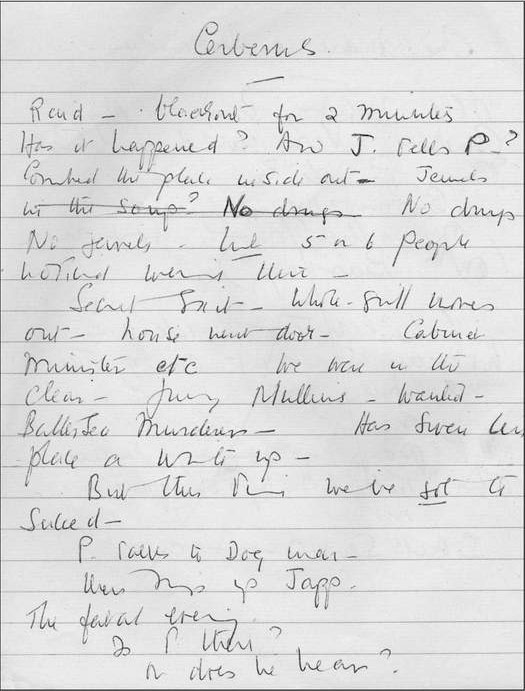 Cerberus
Raid – blackout for 2 minutes
Has it happened? And J. tells P–?
Combed the place inside out – Jewels
in the soup? No drugs No drugs
No jewels – but 5 or 6 people
noticed weren't there –
Secret Exit – Whole still moves
out – house next door – Cabinet
Minister etc We were in the
clear – Jimmy Mullins – wanted –
Battersea Murderer – Has given
place a write up –
But this time we've got to
succeed –
P. talks to Dog man –
then rings up Japp.
The fatal evening.
Is P there?
or does he hear?